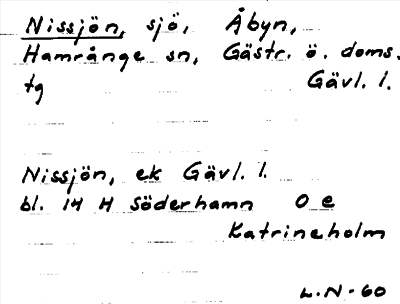 Nissjön, sjö, Åbyn,
Hamrånge sn, Gästr. ö. doms.
tg Gävl. l.
Nissjön, ek Gävl. l.
bl. 14 H Söderhamn O e
Katrineholm
L.N-60